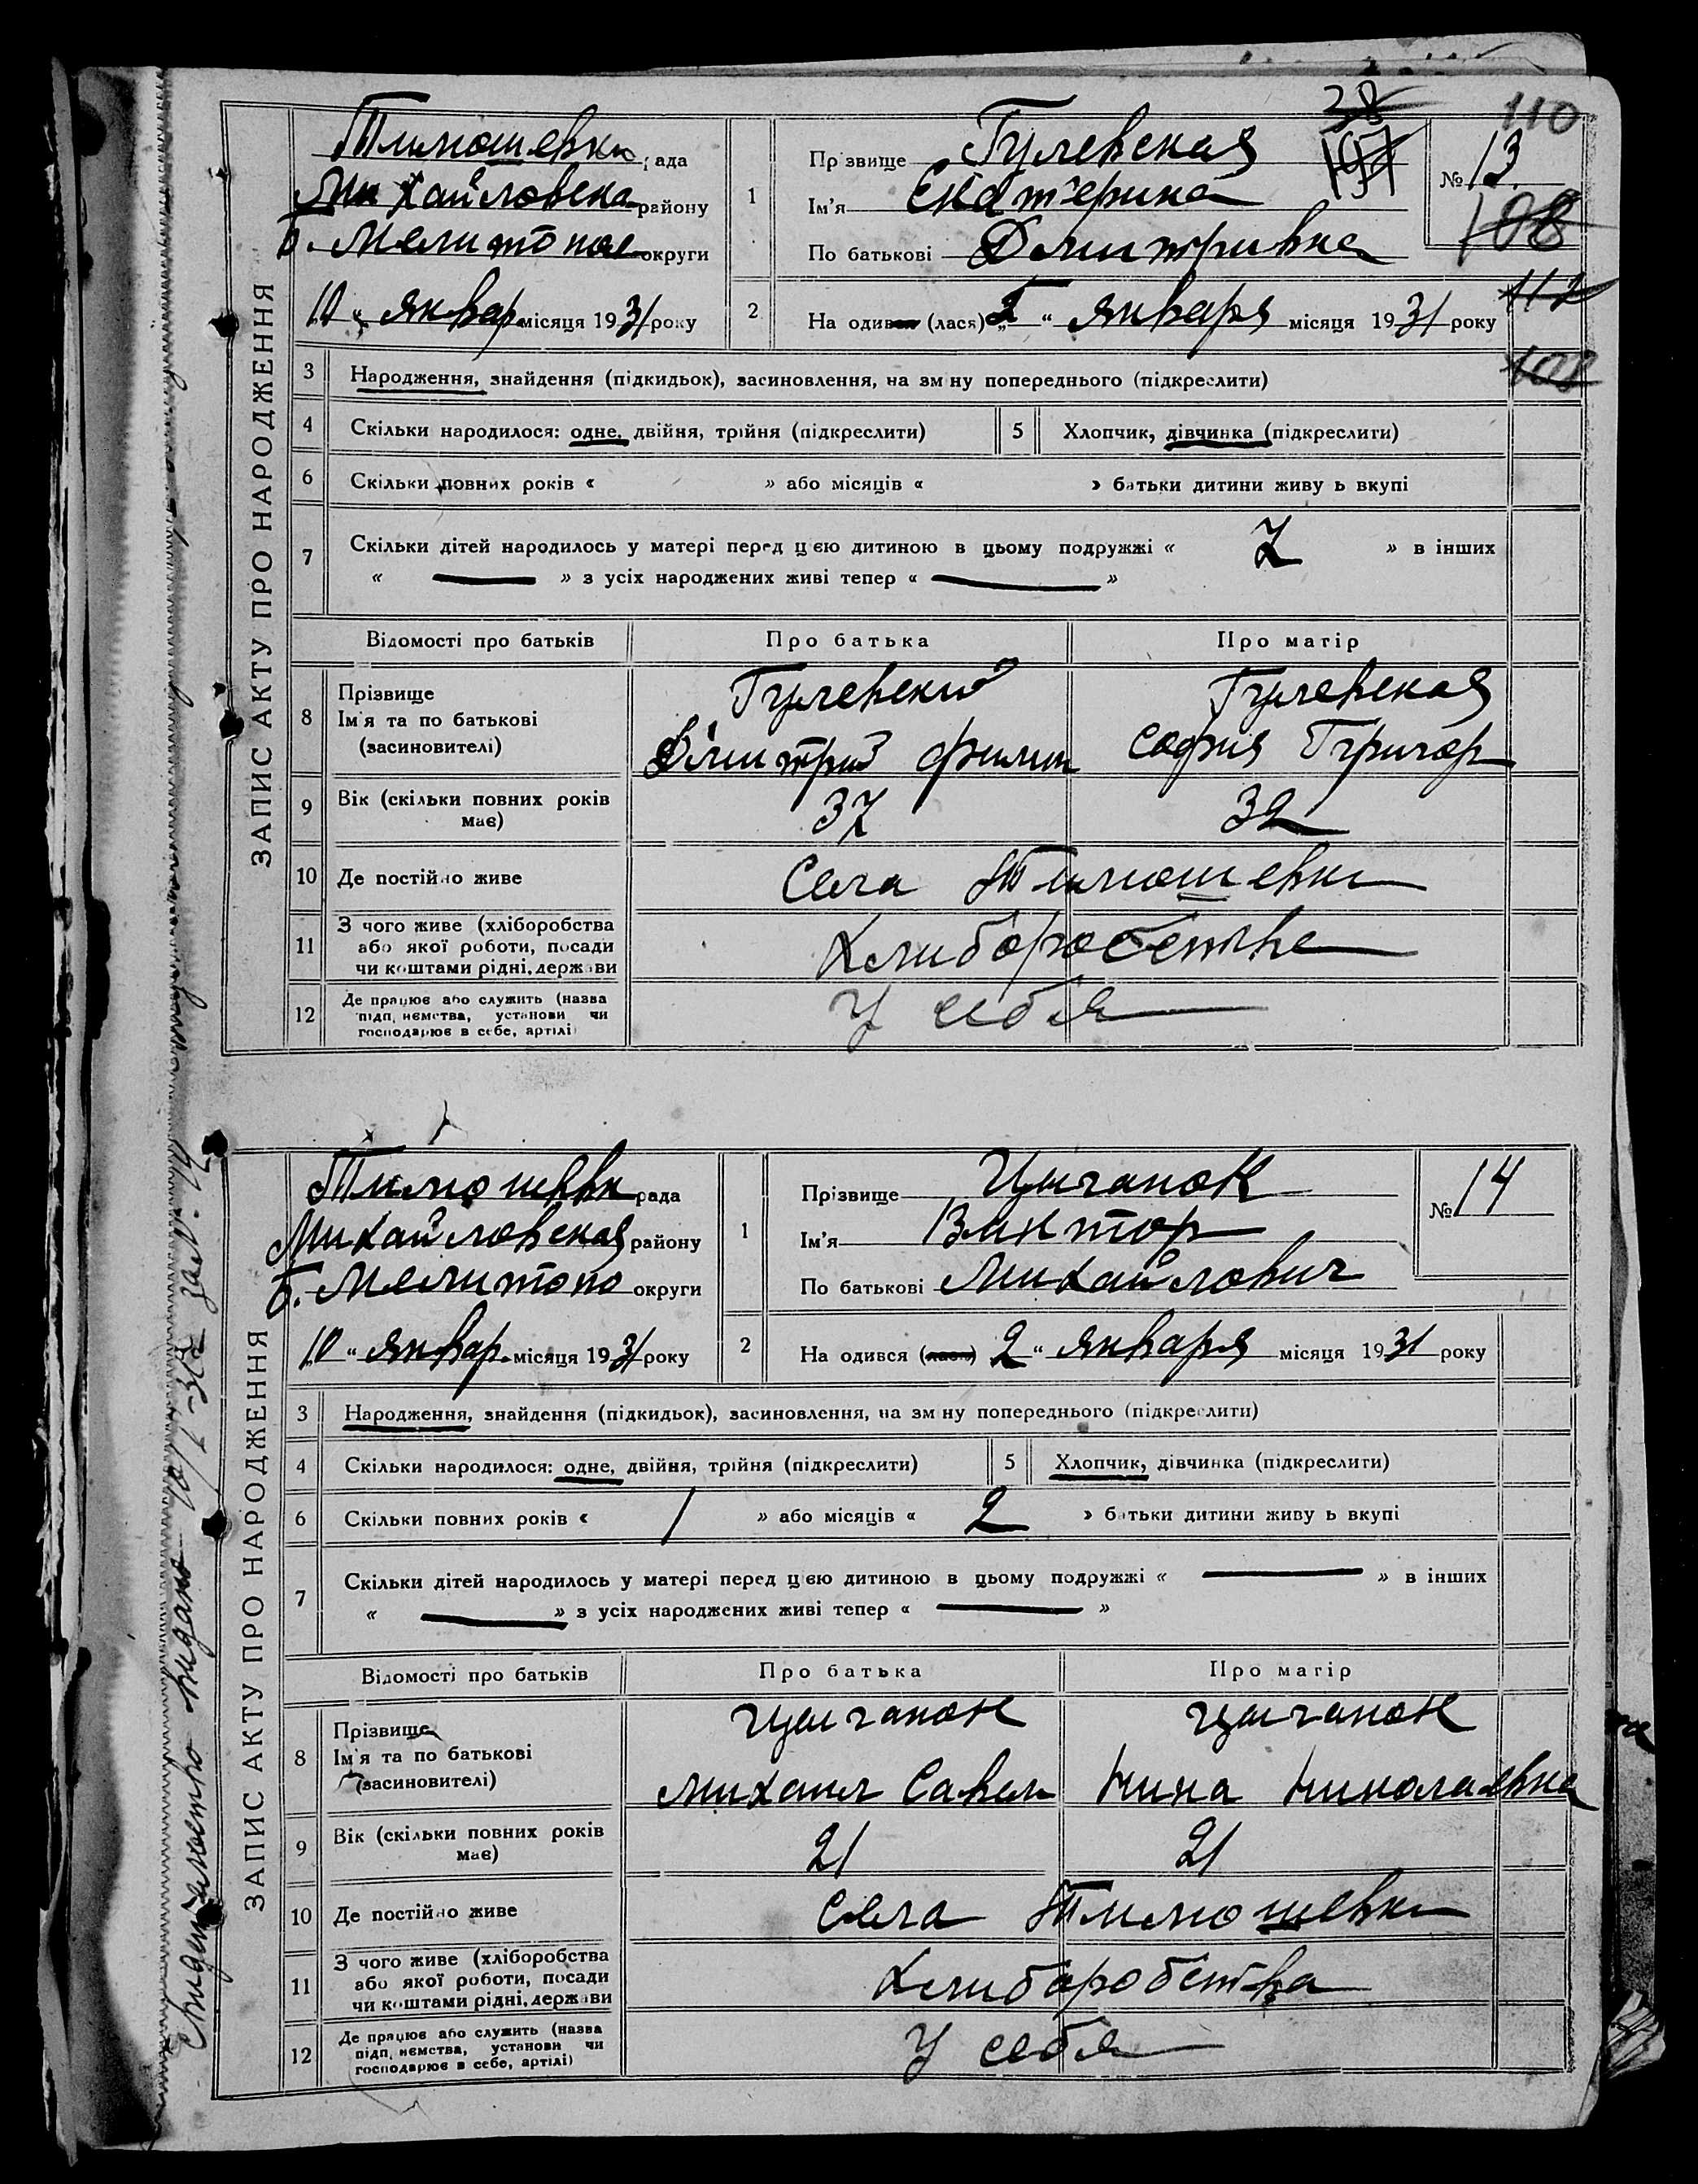 38
110
ЗАПИС АКТУ ПРО НАРОДЖЕННЯ
Тимошевки рада
Михайловска району
б. Мелитопол округи
"10" январ. місяця 1931 року
1 Прізвище Гулевская
Ім'я Екатерина
По батькові Дмитривна
№ 13
108
112
2 На одився (лася) "2" января місяця 1931 року
3 Народження, знайдення (підкидьок), засиновлення, на зм ну попереднього (підкреслити)
4 Скільки народилося: одне, двійня, трійня (підкреслити) 5 Хлопчик, дівчинка (підкреслити)
6 Скільки повних років « » або місяців « » батьки дитини живу ь вкупі
7 Скільки дітей народилось у матері перед цею дитиною в цьому подружжі « 7 » в інших
« — » з усіх народжених живі тепер « — »
Відомості про батьків Про батька Про матір
8 Прізвище Ім'я та по батькові (засиновителі)
Гулевский Гулевская
Дмитрий Филип София Григор
9 Вік (скільки повних років має) 37 32
10 Де постійно живе Села Тимошевки
11 З чого живе (хліборобства або якої роботи, посади чи коштами рідні, держави Хлиборобства
12 Де працює або служить (назва підп, ємства, установи чи господарює в себе, артілі) У себя
ЗАПИС АКТУ ПРО НАРОДЖЕННЯ
Тимошевки рада
Михайловская району
б. Мелитопо округи
"10" январ. місяця 1931 року
1 Прізвище Цыганок
Ім'я Виктор
По батькові Михайлович
№ 14
2 На одився (лася) "2" января місяця 1931 року
3 Народження, знайдення (підкидьок), засиновлення, на зм ну попереднього (підкреслити)
4 Скільки народилося: одне, двійня, трійня (підкреслити) 5 Хлопчик, дівчинка (підкреслити)
6 Скільки повних років « 1 » або місяців « 2 » батьки дитини живу ь вкупі
7 Скільки дітей народилось у матері перед цею дитиною в цьому подружжі « — » в інших
« — » з усіх народжених живі тепер « — »
Відомості про батьків Про батька Про матір
8 Прізвище Ім'я та по батькові (засиновителі)
Цыганок Цыганок
Михаил Савел Нина Николаевна
9 Вік (скільки повних років має) 21 21
10 Де постійно живе Села Тимошевки
11 З чого живе (хліборобства або якої роботи, посади чи коштами рідні, держави Хлиборобства
12 Де працює або служить (назва підп, ємства, установи чи господарює в себе, артілі) У себя
видано 10/I-31 за № 14